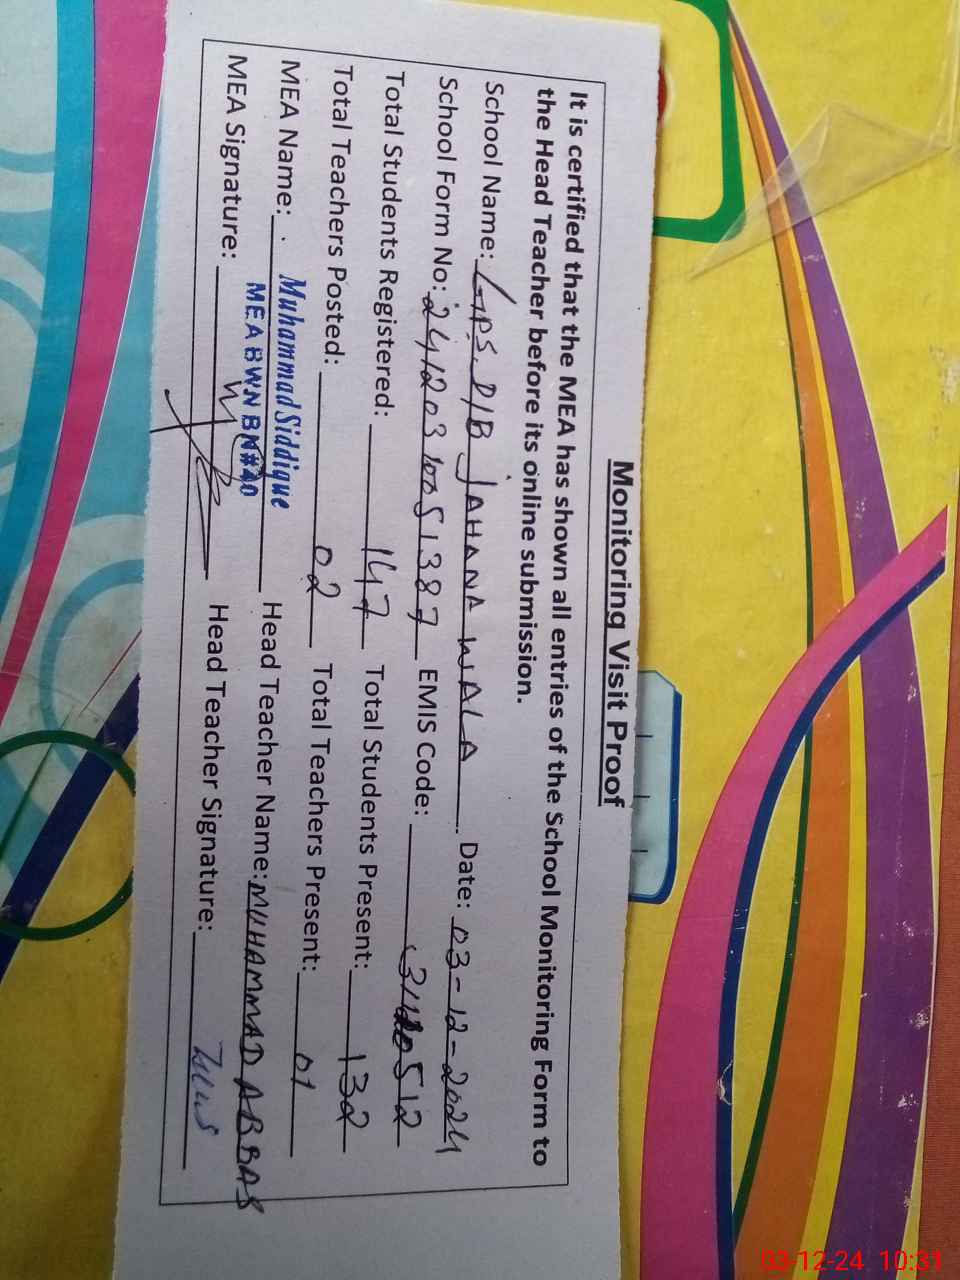 Monitoring Visit Proof
It is certified that the MEA has shown all entries of the School Monitoring Form to
the Head Teacher before its online submission.
School Name: GPS. D/B JAHANA WALA Date: 03-12-2024
School Form No: 24120310051387 EMIS Code: 512
Total Students Registered: 147 Total Students Present: 132
Total Teachers Posted: 02 Total Teachers Present: 01
MEA Name: Muhammad Siddique Head Teacher Name: MUHAMMAD ABBAS
MEA BWN BN#20
MEA Signature: Head Teacher Signature:
03-12-24 10:31